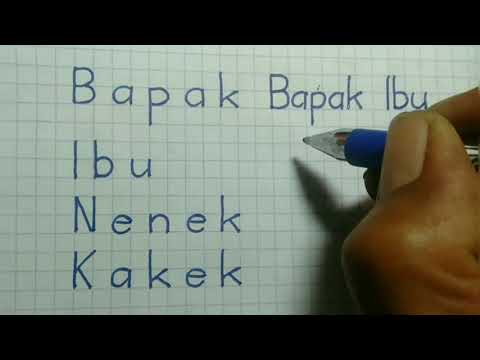 Bapak Bapak Ibu
Ibu
Nenek
Kakek